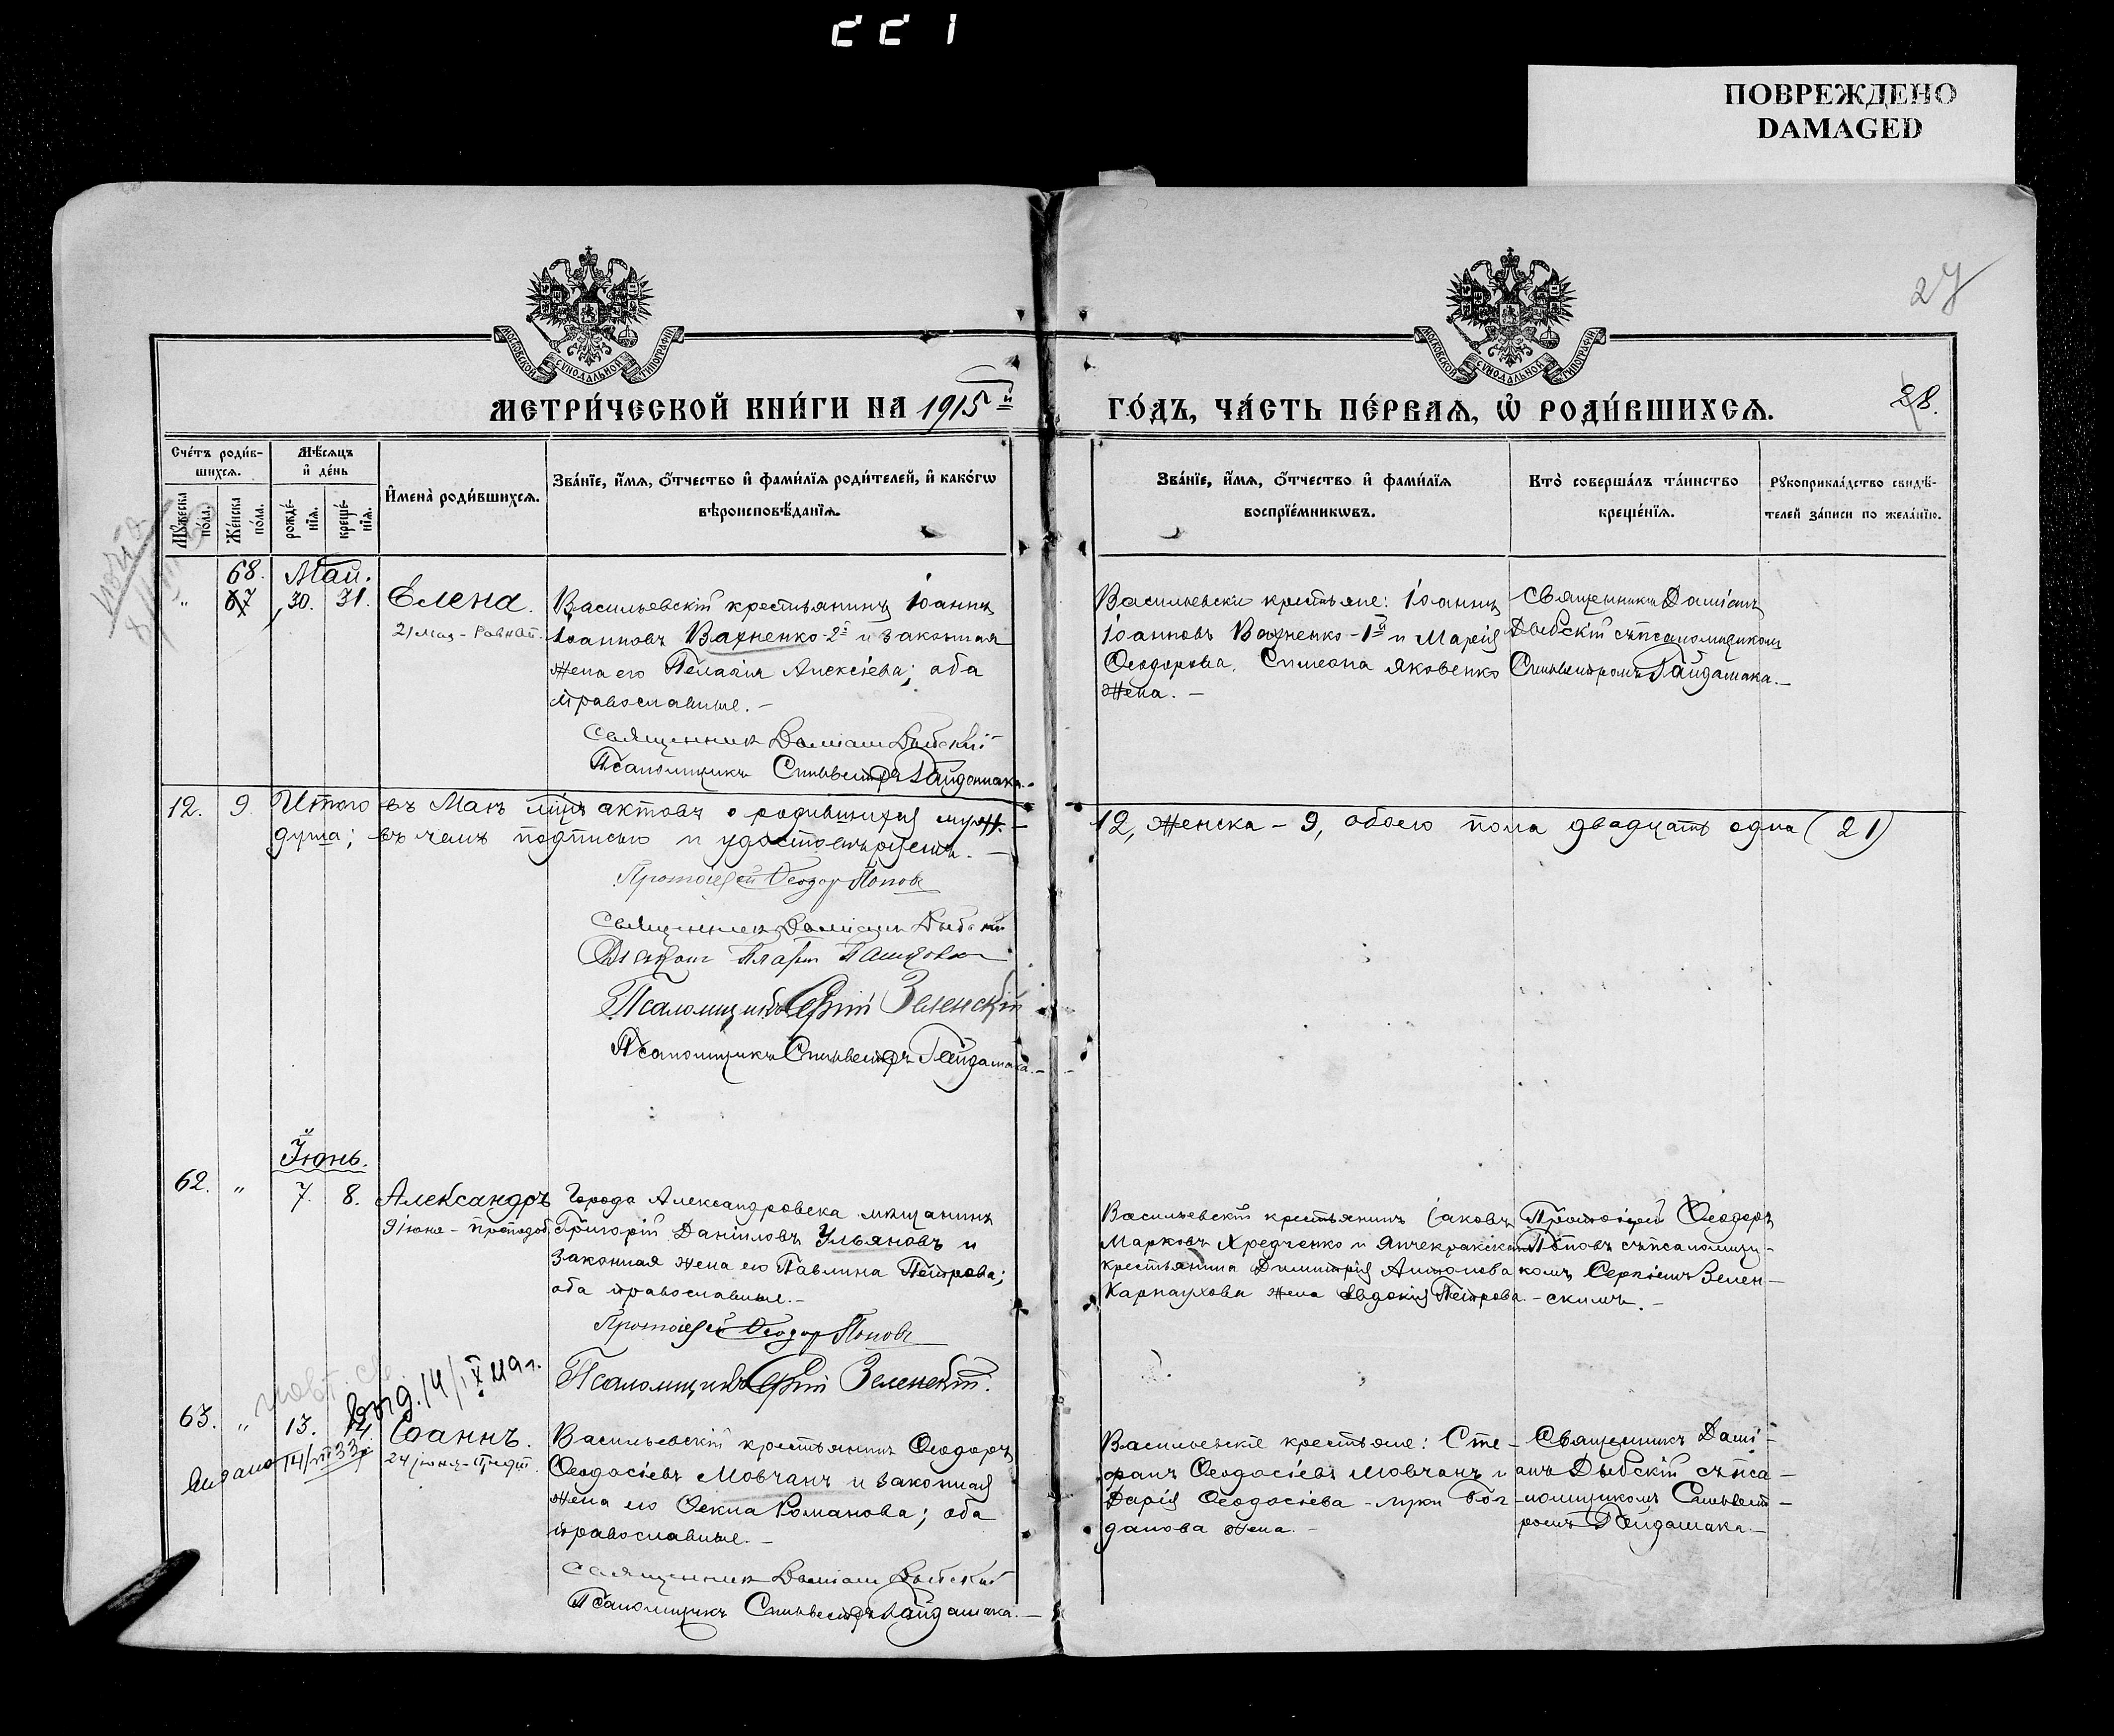 221
ПОВРЕЖДЕНО
DAMAGED
27
МОСКОВСКОЙ СУНОДАЛЬНОЙ ТИПОГРАФІИ
МОСКОВСКОЙ СУНОДАЛЬНОЙ ТИПОГРАФІИ
МЕТРИ́ЧЕСКОЙ КНИ́ГИ НА 1915й
ГО́ДЪ, ЧА́СТЬ ПЕ́РВАѦ, Ѡ҆ РОДИ́ВШИХСѦ.
28.
Сче́тъ роди́в-
шихсѧ.
Мѣ́сѧцъ
и҆ де́нь
Мꙋ́жеска
по́ла.
Же́нска
по́ла.
рожде́-
нїѧ.
креще́-
нїѧ.
И҆мена̀ роди́вшихсѧ.
Зва́нїе, и҆́мѧ, ѻ҆́тчество и҆ фами́лїѧ роди́телей, и҆ како́гѡ
вѣроисповѣ́данїѧ.
Зва́нїе, и҆́мѧ, ѻ҆́тчество и҆ фами́лїѧ
воспрїе́мникѡвъ.
Кто̀ соверша́лъ та́инство
креще́нїѧ.
Рꙋкоприкла́дство свидѣ́-
телей за́писи по жела́нїю.
68. Май.
" 67 30. 31. Елена.
21 мая - Равноап.
Васильевскій крестьянинъ Іоаннъ
Іоанновъ Вахненко-2й и законная
жена его Пелагія Алексіева; оба
православные. -
Священник Даміан Дыбскій
Псаломщикъ Сильвестръ Гайдамака.
Васильевскіе крестьяне: Іоаннъ
Іоанновъ Вахненко-1й и Марія
Ѳеодорова, Симеона Яковенко
жена. -
Священникъ Даміанъ
Дыбскій съ псаломщикомъ
Сильвестромъ Гайдамака. -
12. 9 Итого въ Маѣ мцѣ актовъ о родившихся муж. -
12, женска - 9, обоего пола двадцать одна (21)
душа; въ чемъ подписью и удостовѣряемъ. -
Протоіерей Ѳеодор Попов
Священник Даміан Дыбский
Псаломщикъ Сергій Зеленскій
Псаломщикъ Сильвестръ Гайдамака. -
Іюнь.
62. " 7. 8. Александръ
9 іюня - преподоб.
Города Александровска мѣщанинъ
Григорій Даніиловъ Ульяновъ и
законная жена его Павлина Петрова;
оба православные. -
Протоіерей Ѳеодор Попов
Псаломщикъ Сергій Зеленскій.
Васильевскій крестьянинъ Іаковъ
Марковъ Хредченко и Янчекракскаго
крестьянина Димитрія Антонова
Карпаухова жена Евдокія Петрова. -
Протоіерей Ѳеодоръ
Поповъ съ псаломщи-
комъ Сергіемъ Зелен-
скимъ. -
63. " 13. 14. Іоаннъ.
24 іюня - Предт.
Васильевскій крестьянинъ Ѳеодоръ
Ѳеодосіевъ Мовчанъ и законная
жена его Ѳекла Романова; оба
православные. -
Священник Даміан Дыбский
Псаломщикъ Сильвестръ Гайдамака. -
Васильевскіе крестьяне: Сте-
фанъ Ѳеодосіевъ Мовчанъ и
Дарія Ѳеодосіева
данова жена. -
Священникъ Дамі-
анъ Дыбскій съ пса-
ломщикомъ Сильвест-
ромъ Гайдамака. -